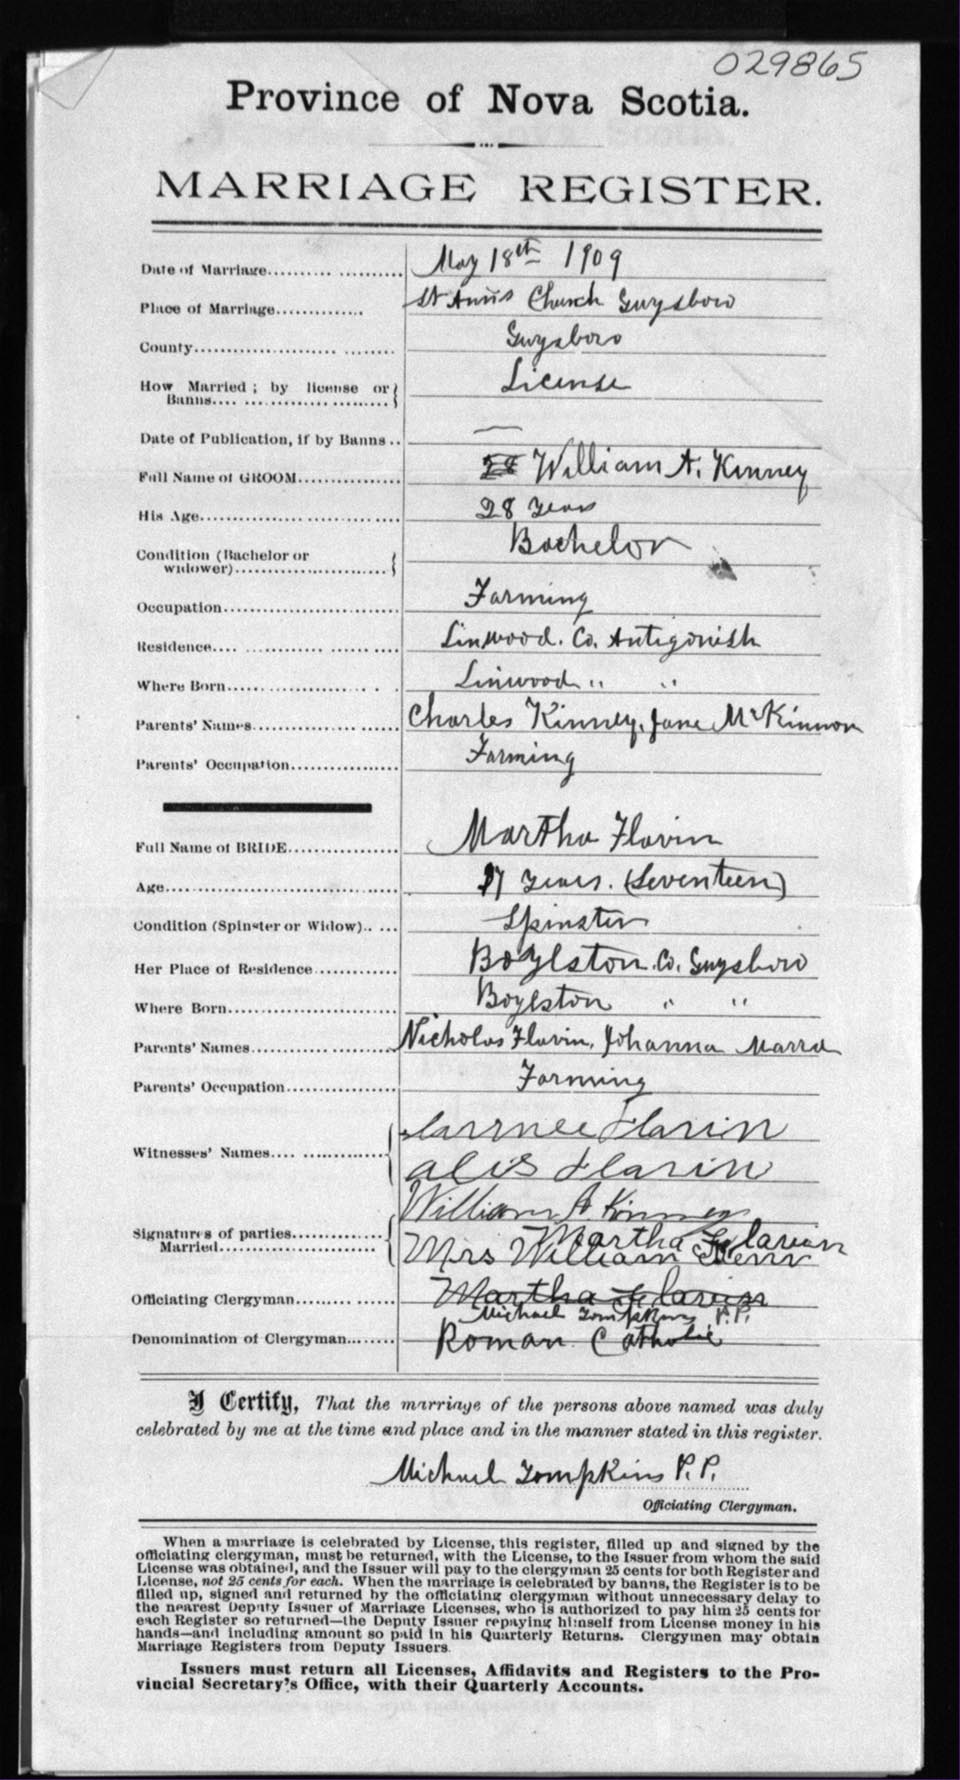 029865
Province of Nova Scotia.
MARRIAGE REGISTER.
Date of Marriage.......... ........... May 18th 1909
Place of Marriage............. St Ann's Church Guysboro
County...................... ........ Guysboro
How Married ; by license or
Banns.... ........................ License
Date of Publication, if by Banns .. —
Full Name of GROOM............... William A. Kinney
His Age............................... 28 Years
Condition (Bachelor or
widower)....................... Bachelor
Occupation........................... Farming
Residence.... ............ ...... .... Linwood. Co. Antigonish
Where Born..................... . . . Linwood " "
Parents' Names...................... Charles Kinney, Jane McKinnon
Parents' Occupation................. Farming
Full Name of BRIDE................ Martha Flavin
Age................................... 17 Years. (Seventeen)
Condition (Spinster or Widow).. ... Spinster
Her Place of Residence............. Boylston. Co. Guysboro
Where Born......................... Boylston " "
Parents' Names...................... Nicholas Flavin, Johanna Marra
Parents' Occupation................ Farming
Witnesses' Names.... .............. Clarence Flavin
Alis Flavin
William A Kinney
Signatures of parties............. Martha Flavin
Married....................... Mrs William
Officiating Clergyman........ ....... Martha Flavin
Michael Tompkins P.P.
Denomination of Clergyman........ Roman Catholic
I Certify, That the marriage of the persons above named was duly
celebrated by me at the time and place and in the manner stated in this register.
Michael Tompkins P.P.
Officiating Clergyman.
When a marriage is celebrated by License, this register, filled up and signed by the
officiating clergyman, must be returned, with the License, to the Issuer from whom the said
License was obtained, and the Issuer will pay to the clergyman 25 cents for both Register and
License, not 25 cents for each. When the marriage is celebrated by banns, the Register is to be
filled up, signed and returned by the officiating clergyman without unnecessary delay to
the nearest Deputy Issuer of Marriage Licenses, who is authorized to pay him 25 cents for
each Register so returned—the Deputy Issuer repaying himself from License money in his
hands—and including amount so paid in his Quarterly Returns. Clergymen may obtain
Marriage Registers from Deputy Issuers.
Issuers must return all Licenses, Affidavits and Registers to the Pro-
vincial Secretary's Office, with their Quarterly Accounts.